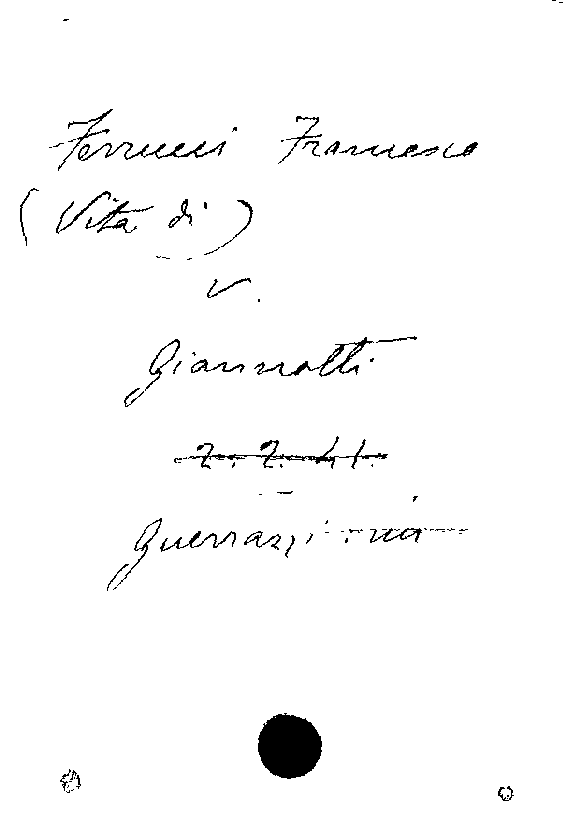 Ferrucci Francesco
(Vita di)
V.
Giannotti
2. 2. 41.
Guerrazzi